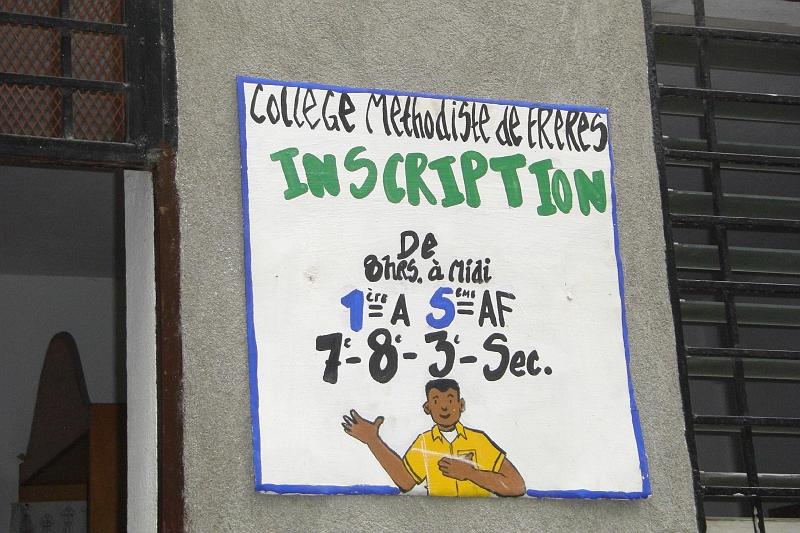 COLLEGE Méthodiste de FRERES
INSCRIPTION
De
8hrs. à Midi
1ère A 5ème AF
7e - 8e - 3e - Sec.